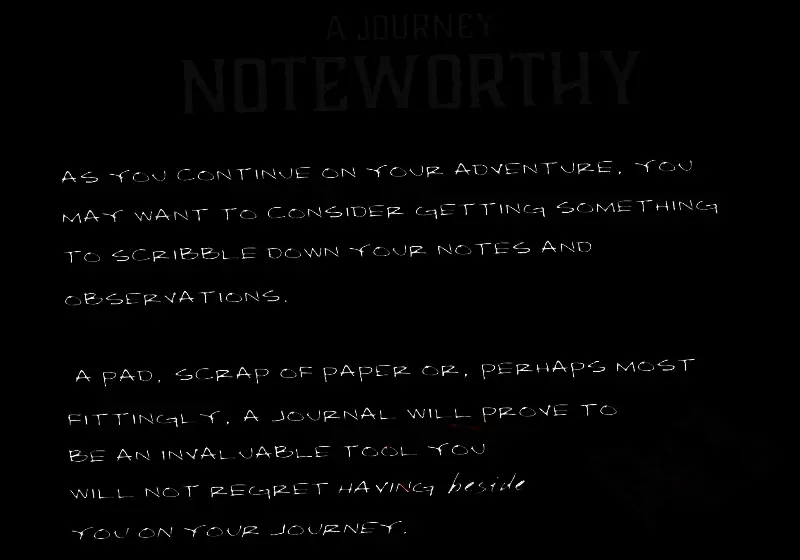 A JOURNEY
NOTEWORTHY
AS YOU CONTINUE ON YOUR ADVENTURE, YOU
MAY WANT TO CONSIDER GETTING SOMETHING
TO SCRIBBLE DOWN YOUR NOTES AND
OBSERVATIONS.
A PAD, SCRAP OF PAPER OR, PERHAPS MOST
FITTINGLY, A JOURNAL WILL PROVE TO
BE AN INVALUABLE TOOL YOU
WILL NOT REGRET HAVING beside
YOU ON YOUR JOURNEY.